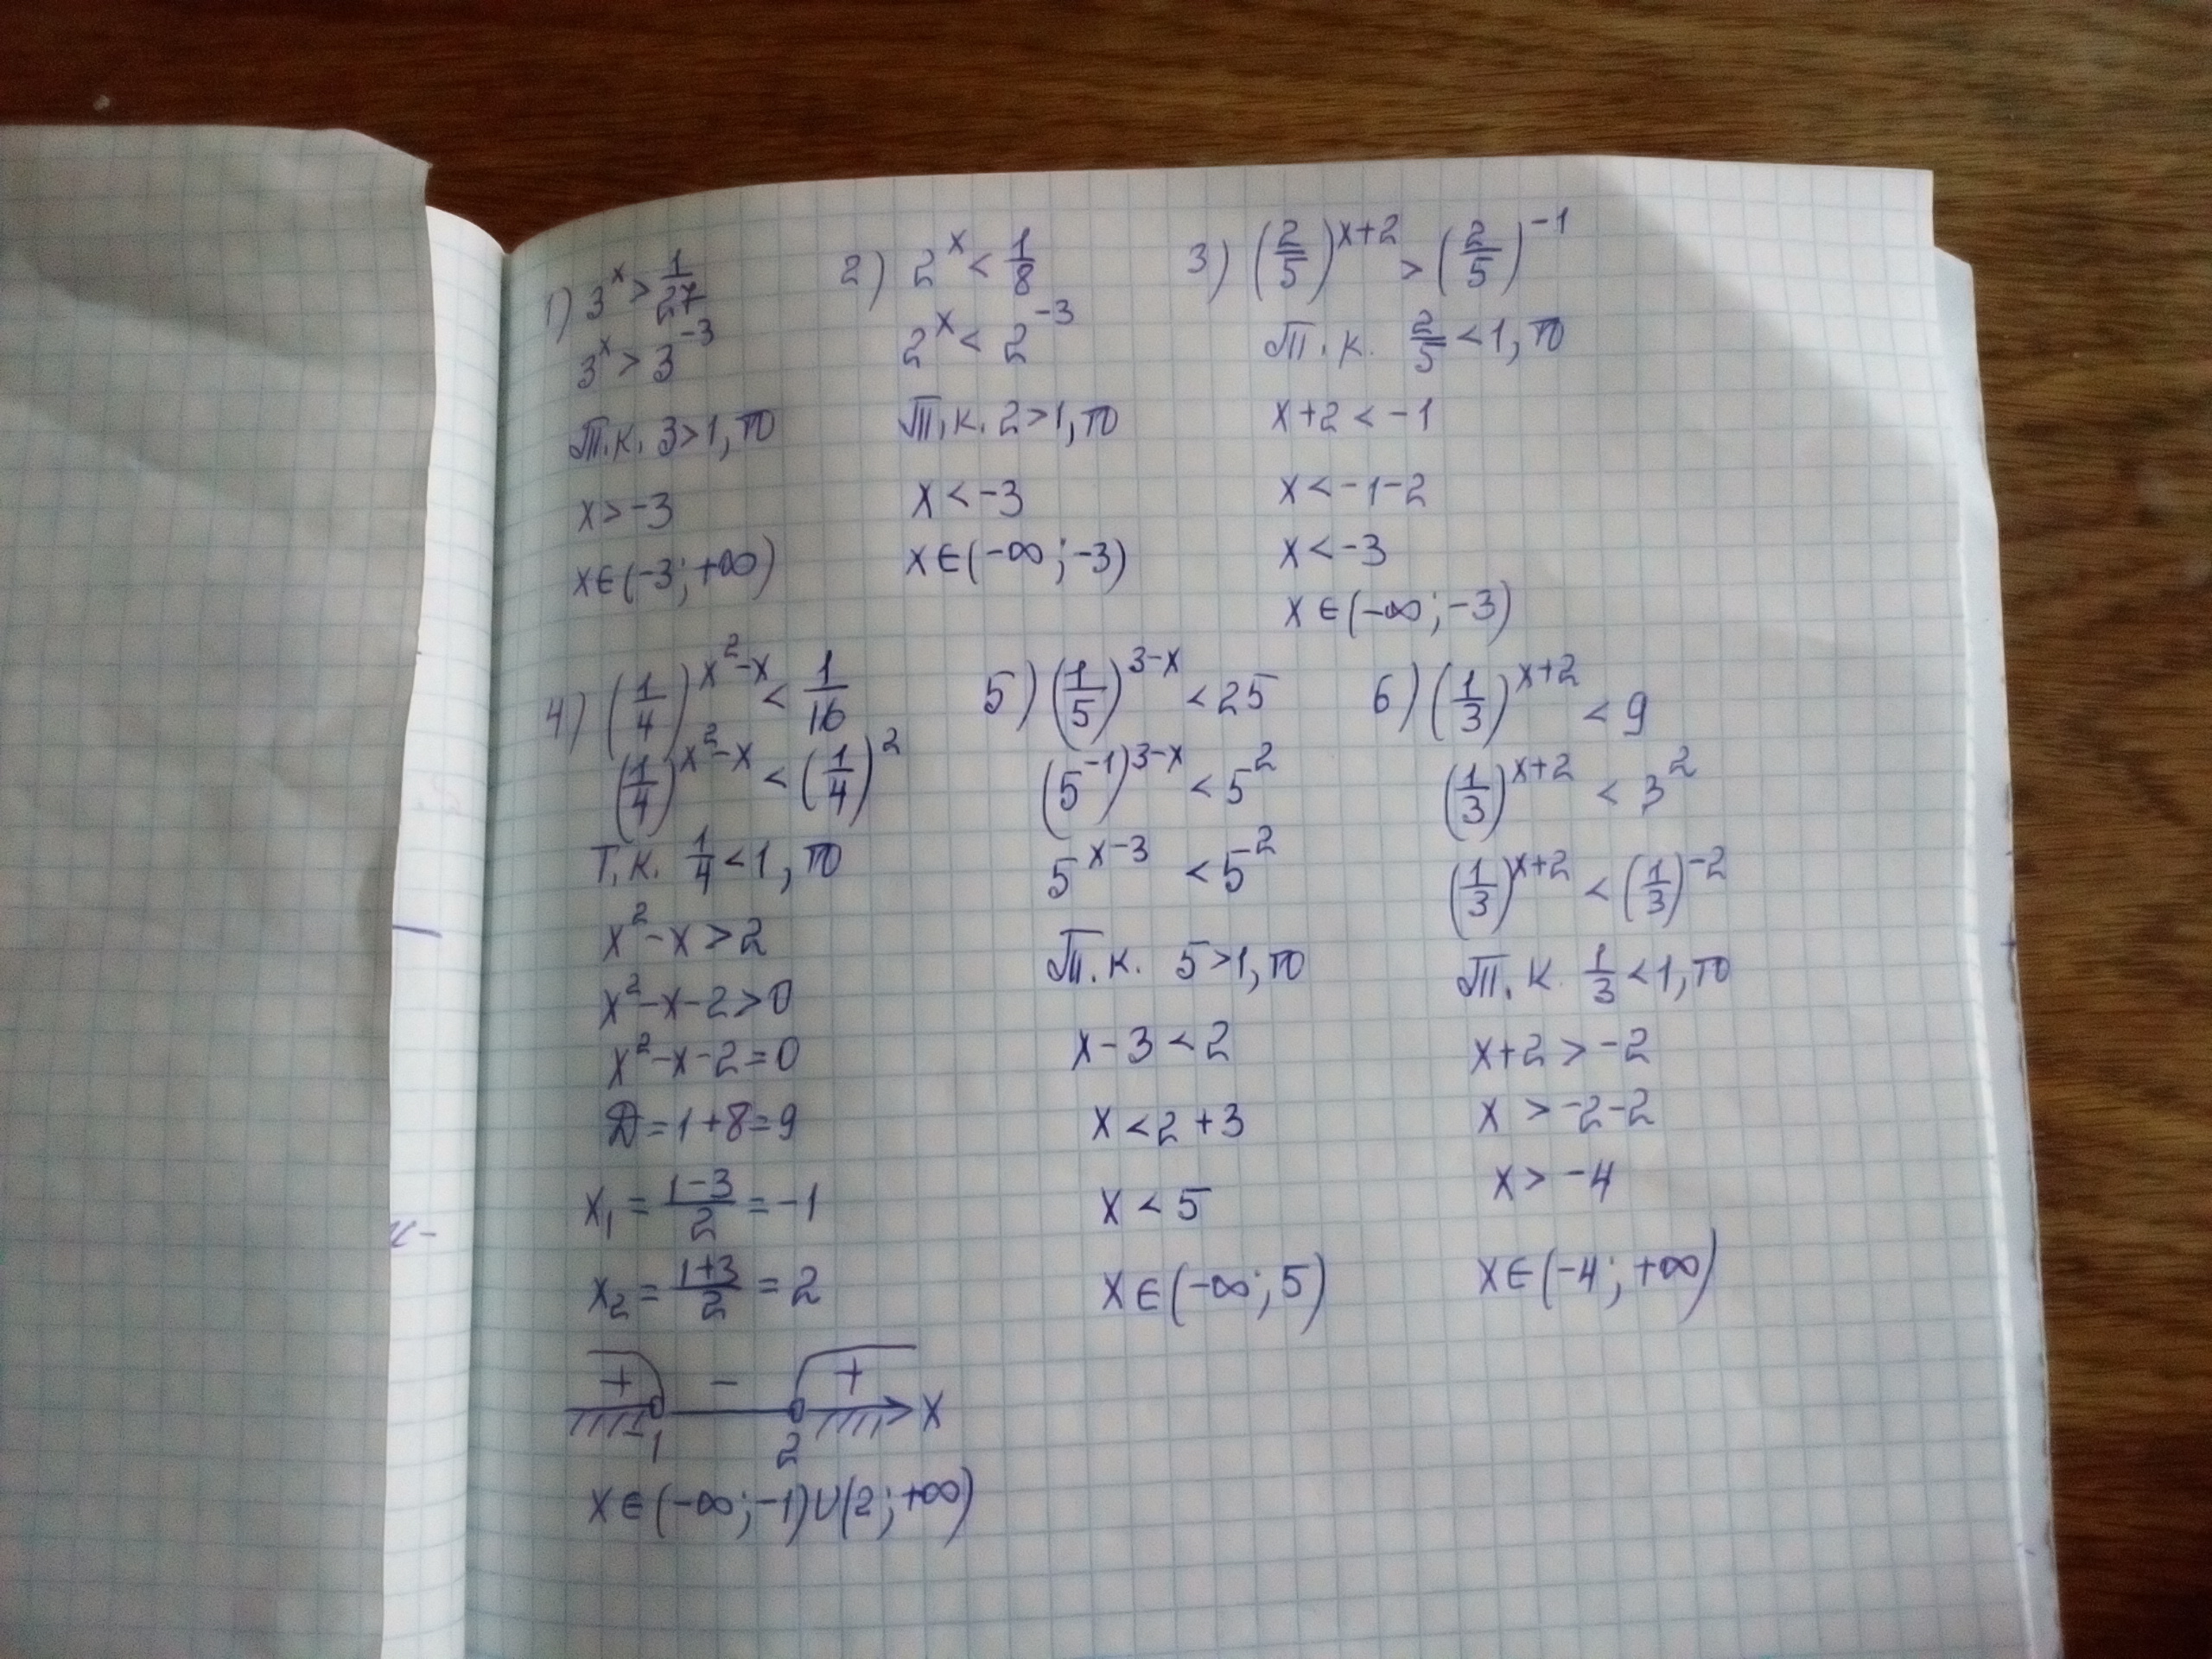 1) 3^x > 1/27
3^x > 3^-3
Т.к. 3>1, то
x > -3
x∈(-3; +∞)
2) 2^x < 1/8
2^x < 2^-3
Т.к. 2>1, то
x < -3
x∈(-∞; -3)
3) (2/5)^x+2 > (2/5)^-1
Т.к. 2/5 < 1, то
x+2 < -1
x < -1-2
x < -3
x∈(-∞; -3)
4) (1/4)^x²-x < 1/16
(1/4)^x²-x < (1/4)^2
Т.к. 1/4 < 1, то
x²-x > 2
x²-x-2 > 0
x²-x-2 = 0
Д = 1+8 = 9
x₁ = 1-3/2 = -1
x₂ = 1+3/2 = 2
+ - + x
-1 2
x∈(-∞; -1)∪(2; +∞)
5) (1/5)^3-x < 25
(5^-1)^3-x < 5^2
5^x-3 < 5^2
Т.к. 5>1, то
x-3 < 2
x < 2+3
x < 5
x∈(-∞; 5)
6) (1/3)^x+2 < 9
(1/3)^x+2 < 3^2
(1/3)^x+2 < (1/3)^-2
Т.к. 1/3 < 1, то
x+2 > -2
x > -2-2
x > -4
x∈(-4; +∞)